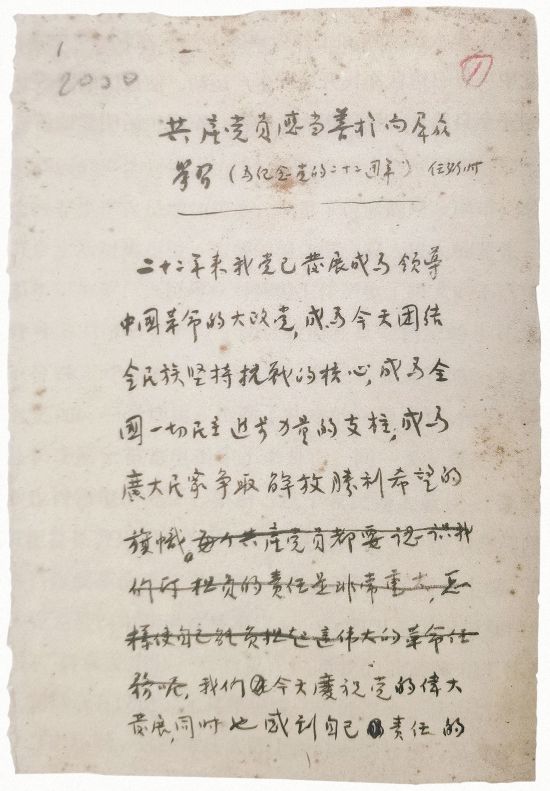 1
2030
共產党員應当善於向群众
學習（為纪念党的二十二周年）任弼时
二十二年来我党已發展成為領導
中國革命的大政党，成為今天团结
全民族坚持抗战的核心，成為全
國一切民主进步力量的支柱，成為
廣大民众争取解放勝利希望的
旗幟。每个共產党員都要認識我
们所担负的責任是非常重大，怎
樣使自己能负担起這伟大的革命任
務呢，我们在今天慶祝党的偉大
發展，同时也感到自己責任的